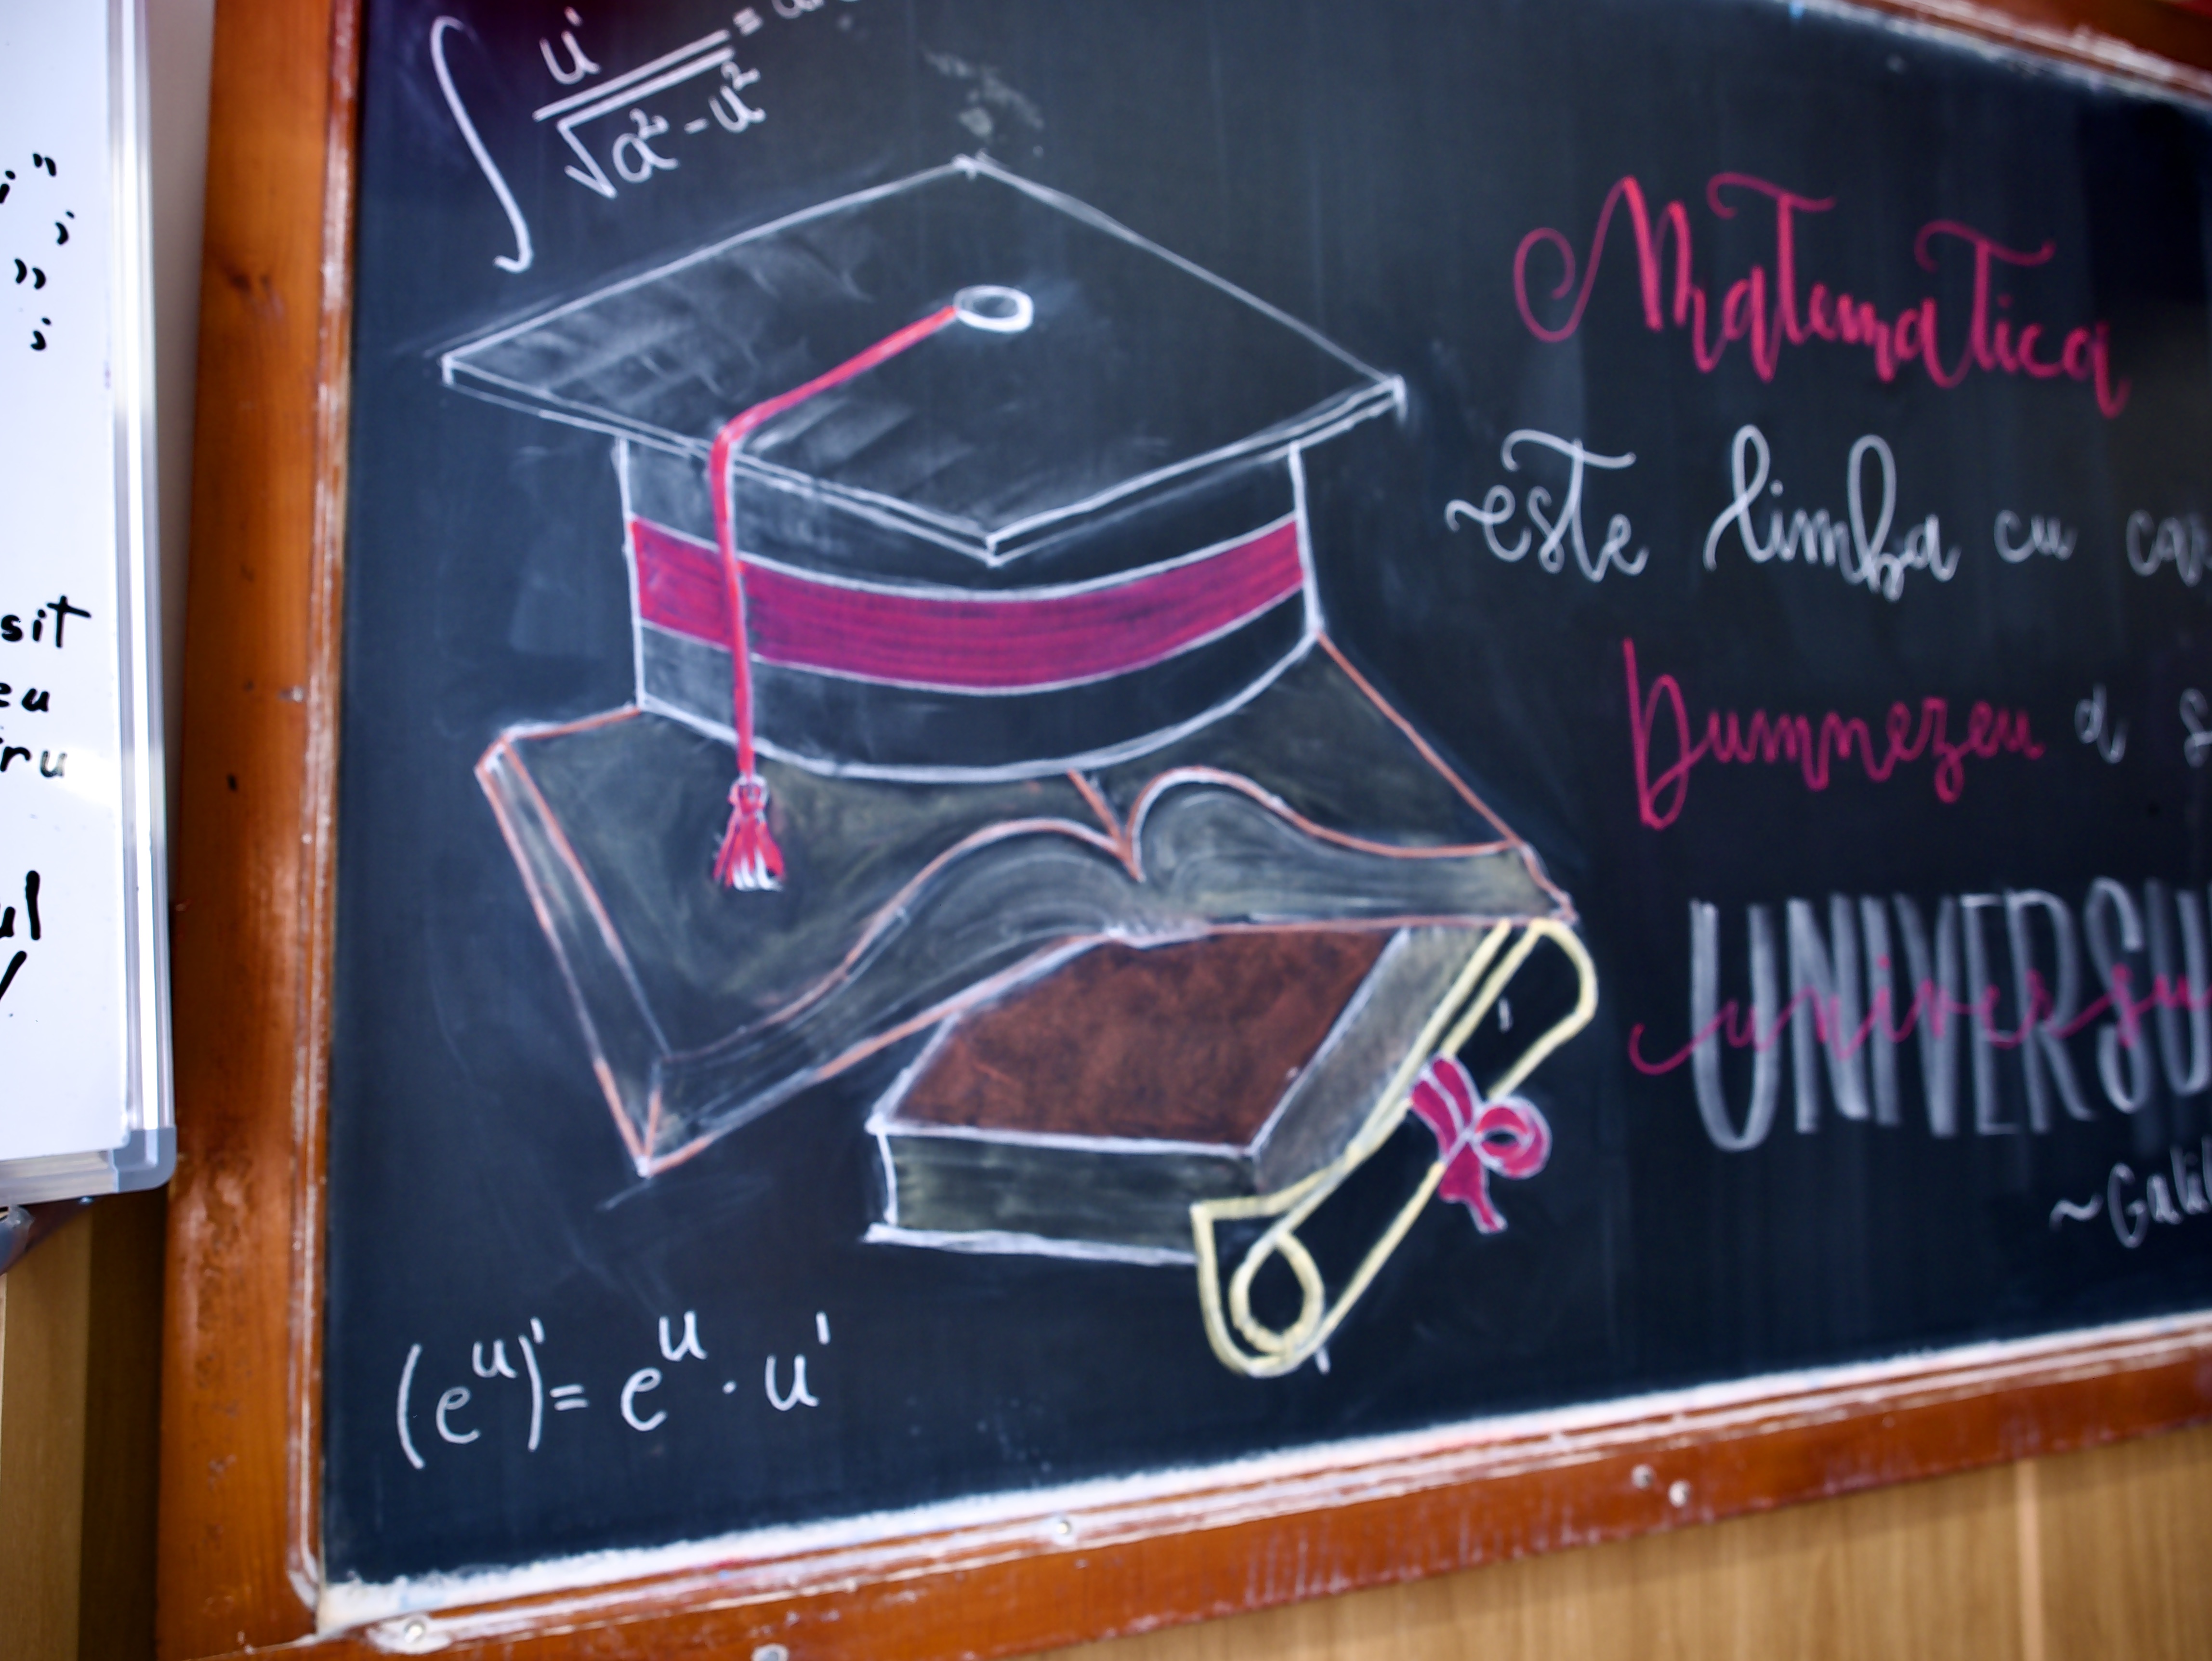 i"
;
"
;
sit
eu
ru
ul
/
∫ u' / √(a² - u²) =
Matematica
este limba cu car
Dumnezeu a s
UNIVERSU
universu
~Galil
(e^u)' = e^u · u'